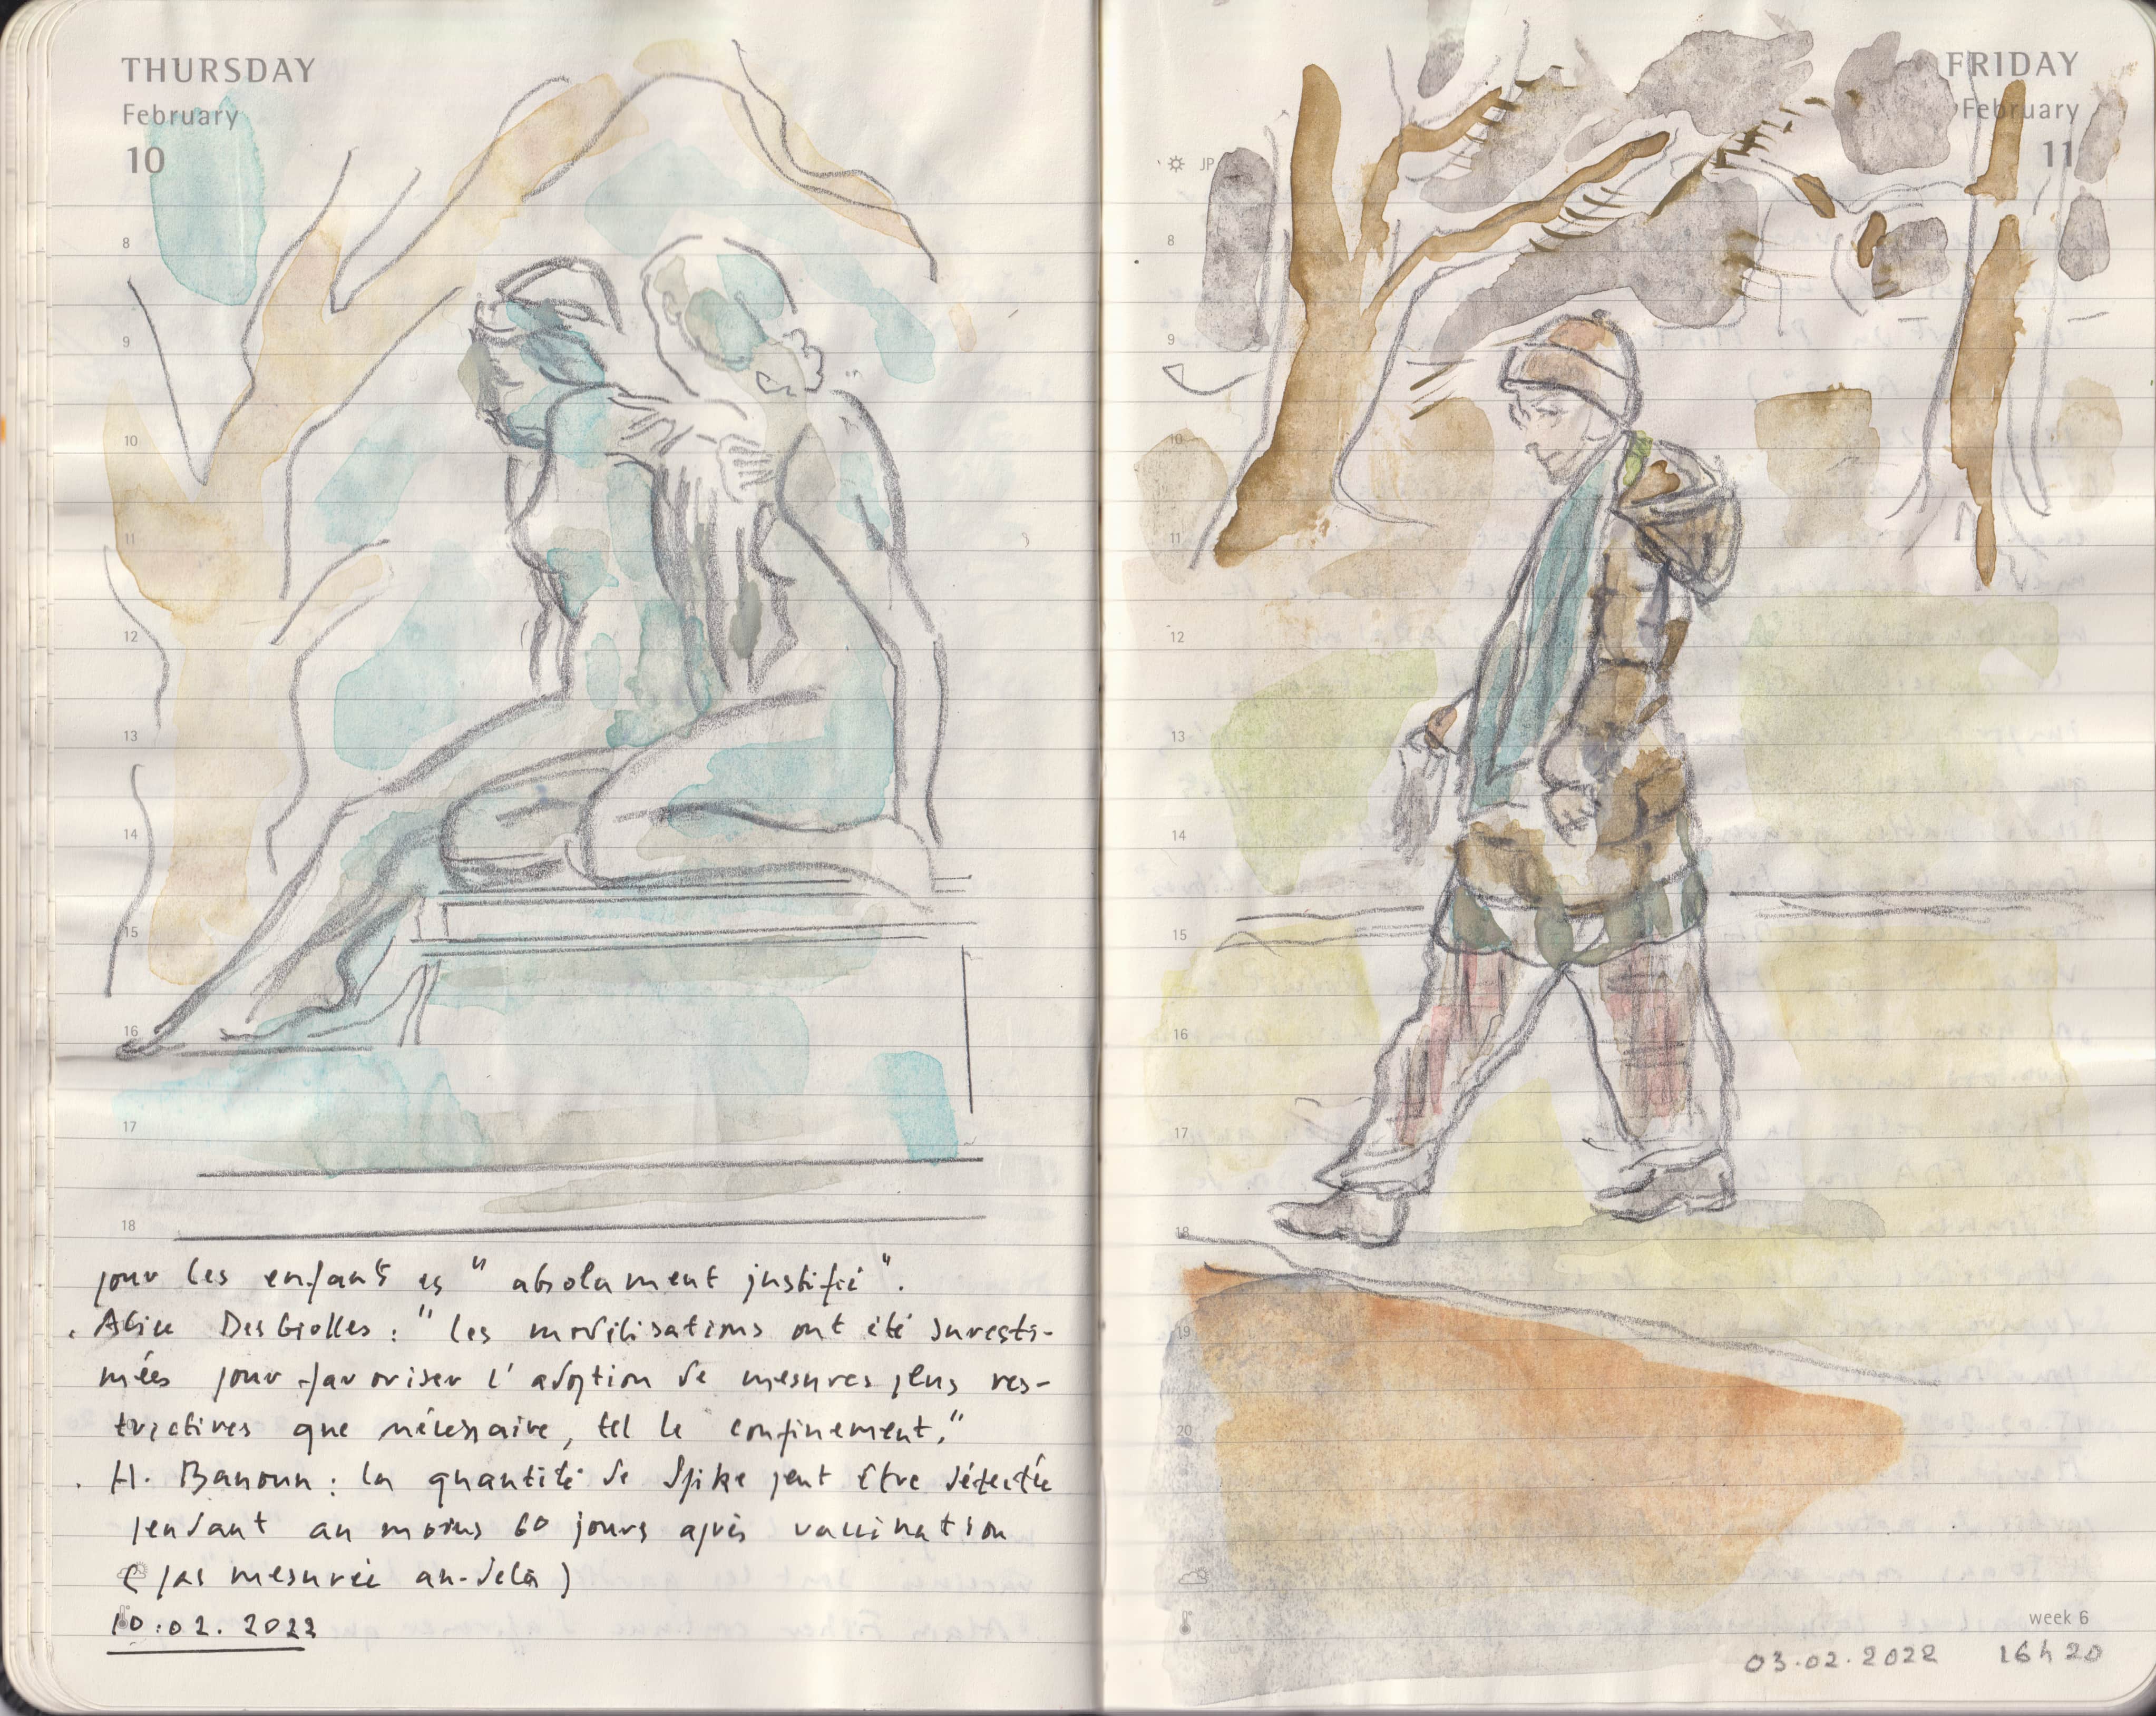 THURSDAY
February
10
8
9
10
11
12
13
14
15
16
17
18
pour les enfants es " absolament justifié ".
. Alice Desbiolles : " les modélisations ont été suresti-
mées pour favoriser l'adoption de mesures plus res-
trictives que nécessaire, tel le confinement."
. H. Banoun : la quantité de Spike peut être détectée
pendant au moins 60 jours après vaccination
( pas mesurée au-delà )
10.02.2022
FRIDAY
February
11
JP
8
9
10
11
12
13
14
15
16
17
18
19
20
week 6
03.02.2022 16h20